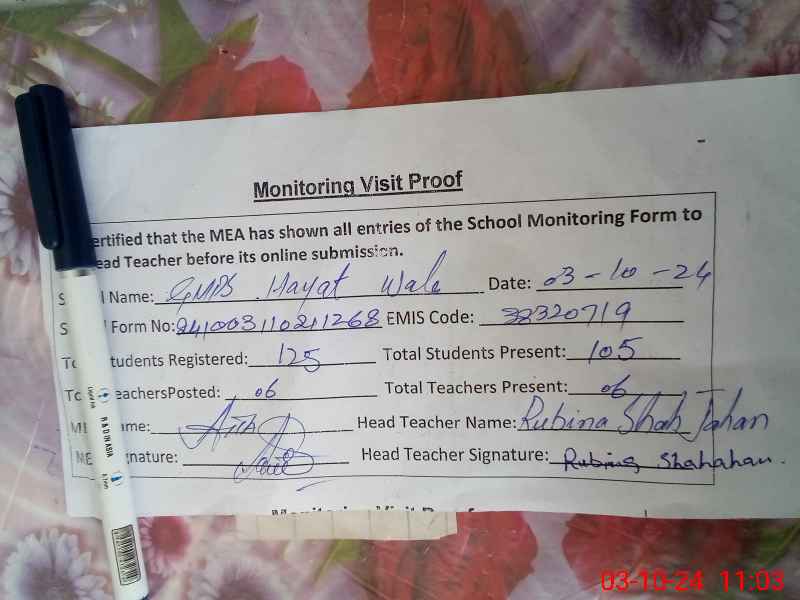 Monitoring Visit Proof
ertified that the MEA has shown all entries of the School Monitoring Form to
ead Teacher before its online submission.
S l Name: GMPS Hayat Wale Date: 03-10-24
S Form No: 241003110211268 EMIS Code: 38320719
To tudents Registered: 125 Total Students Present: 105
To eachersPosted: 06 Total Teachers Present: 06
ME ame: Head Teacher Name: Rubina Shah Jahan
ME gnature: Head Teacher Signature: Rubina Shahahan.
R & D IN ASIA
03-10-24 11:03